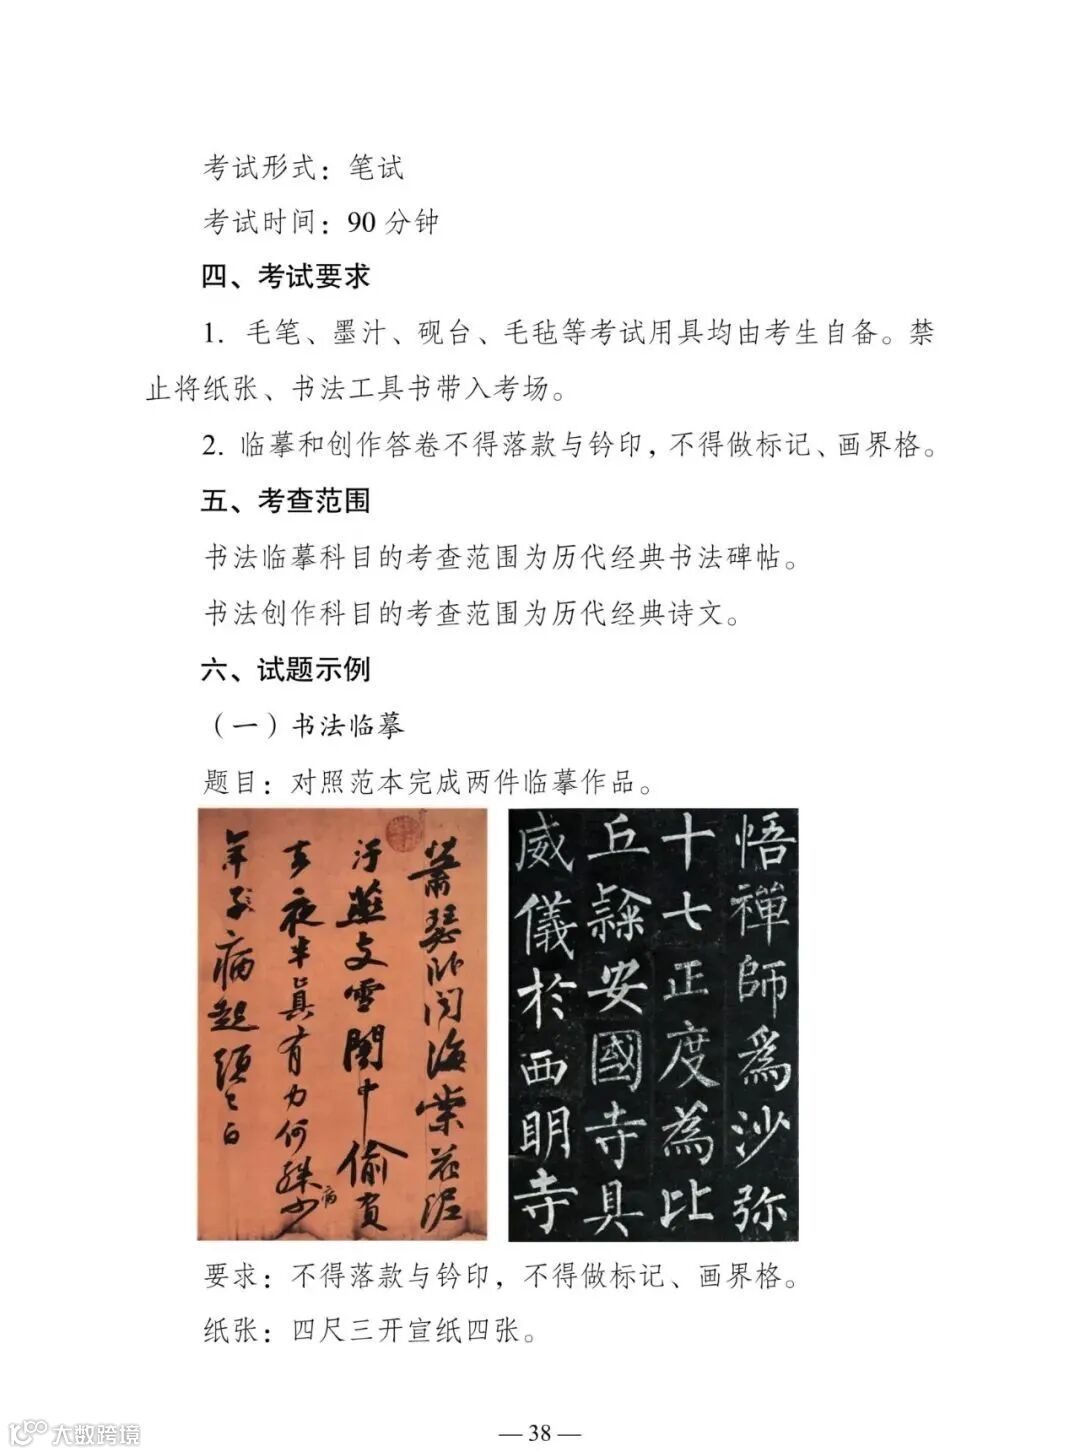 考试形式：笔试
考试时间：90 分钟
四、考试要求
1. 毛笔、墨汁、砚台、毛毡等考试用具均由考生自备。禁
止将纸张、书法工具书带入考场。
2. 临摹和创作答卷不得落款与钤印，不得做标记、画界格。
五、考查范围
书法临摹科目的考查范围为历代经典书法碑帖。
书法创作科目的考查范围为历代经典诗文。
六、试题示例
（一）书法临摹
题目：对照范本完成两件临摹作品。
萧瑟卧闻海棠花泥
汙燕支雪闇中偷负
去夜半真有力何殊少
年子病起须已白
病
悟禪師為沙弥
十七正度為比
丘緣安國寺具
威儀於西明寺
要求：不得落款与钤印，不得做标记、画界格。
纸张：四尺三开宣纸四张。
— 38 —
大数跨境